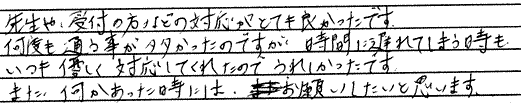 先生や、受付の方などの対応がとても良かったです。
何度も通う事が多かったのですが、時間に遅れてしまう時も
いつも優しく対応してくれたのでうれしかったです。
また、何かあった時には、お願いしたいと思います。